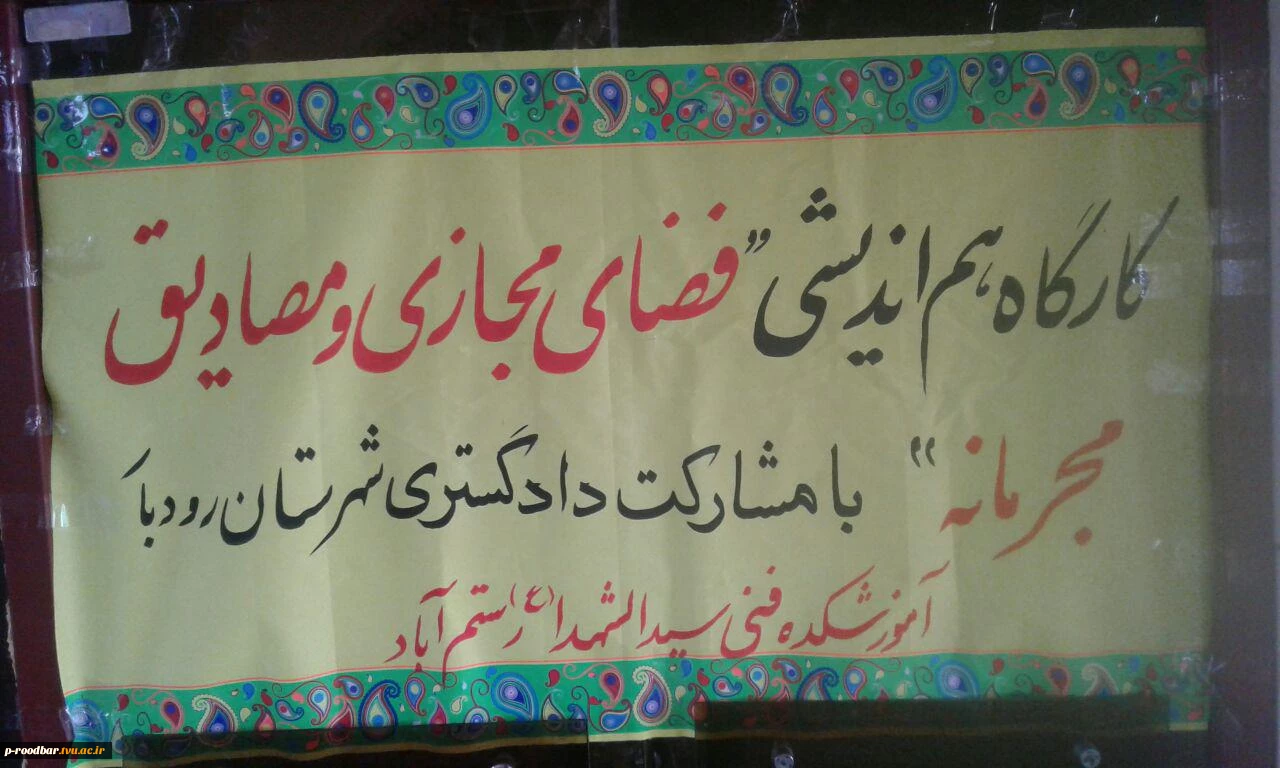 کارگاه هم اندیشی "فضای مجازی و مصادیق
مجرمانه" با مشارکت دادگستری شهرستان رودبار
آموزشکده فنی سیدالشهدا (ع) رستم آباد
p-roodbar.tvu.ac.ir